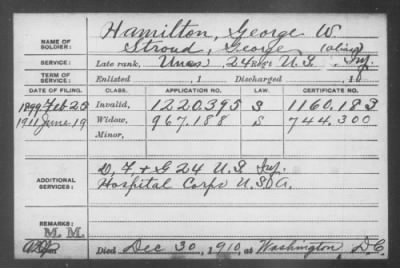 NAME OF SOLDIER: Hamilton, George W.
Stroud, George (alias)
SERVICE: Late rank, Unas, 24 Reg't U.S. Inf.
TERM OF SERVICE: Enlisted , 1 Discharged , 1
DATE OF FILING. CLASS. APPLICATION NO. LAW. CERTIFICATE NO.
1899 Feb 25 Invalid, 1220.395 S 1160.183
1911 June 19 Widow, 967.188 S 744.300
Minor,
ADDITIONAL SERVICES: D, F + G 24 U.S. Inf.
Hospital Corps U.S.A.
REMARKS: M. M.
Died Dec 30, 1910, at Washington, D.C.